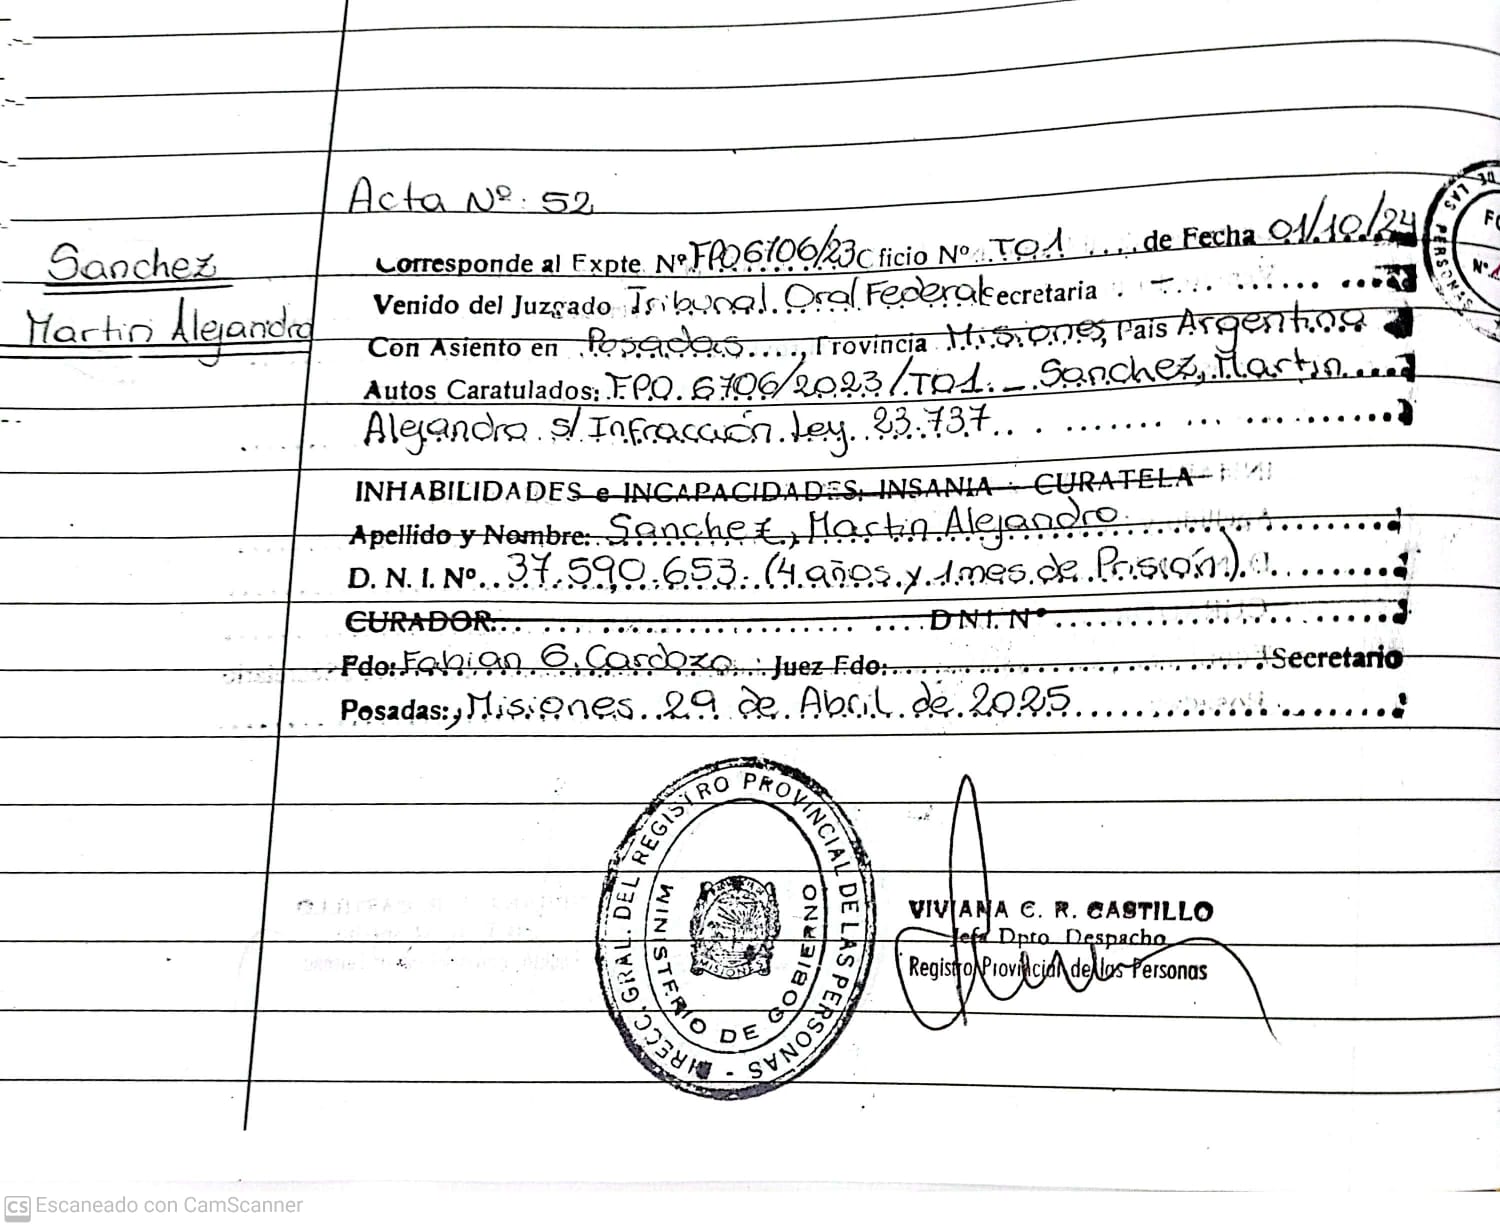 Acta Nº. 52
Sanchez
Martin Alejandro
Corresponde al Expte Nº FPO 6706/23 Oficio Nº. TO1 .... de Fecha 01/10/24
Venido del Juzgado Tribunal Oral Federal Secretaria . - ..
Con Asiento en Posadas...., Provincia Misiones, País Argentina
Autos Caratulados: FPO. 6706/2023/TO1. _ Sanchez, Martin
Alejandro s/ Infracción Ley 23.737.
INHABILIDADES e INCAPACIDADES, INSANIA - CURATELA
Apellido y Nombre: Sanchez, Martin Alejandro
D. N. I. Nº.. 37.590.653. (4 años y 1 mes de Prisión)
CURADOR: .................... DNI. Nº ..................
Fdo: Fabian G. Cardozo. Juez Fdo: .................... Secretario
Posadas:, Misiones 29 de Abril de 2025
DIRECC. GRAL. DEL REGISTRO PROVINCIAL DE LAS PERSONAS -
MINISTERIO DE GOBIERNO
MISIONES
VIVIANA C. R. CASTILLO
Jefa Dpto Despacho
Registro Provincial de las Personas
DE LAS PERSONAS
FO
Nº
CS Escaneado con CamScanner